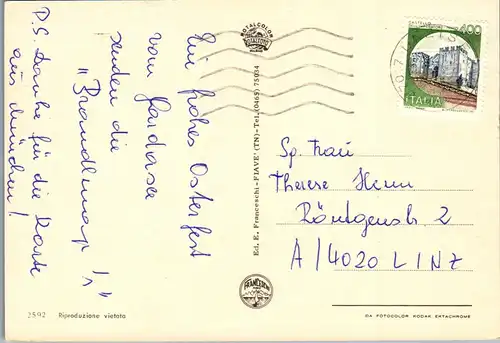 Ein frohes Osterfest
vom Gardasee
senden die
"Brandlmayr's"
P.S. Danke für die Karte
aus München!
ROTALCOLOR
Ed. E. Franceschi-FIAVE' (TN)-Tel. (0465) 75034
CASTELLO
400
ITALIA
Sp. Frau
Therese Henn
Röntgenstr. 2
A/4020 LINZ
2592 Riproduzione vietata
DA FOTOCOLOR KODAK EKTACHROME